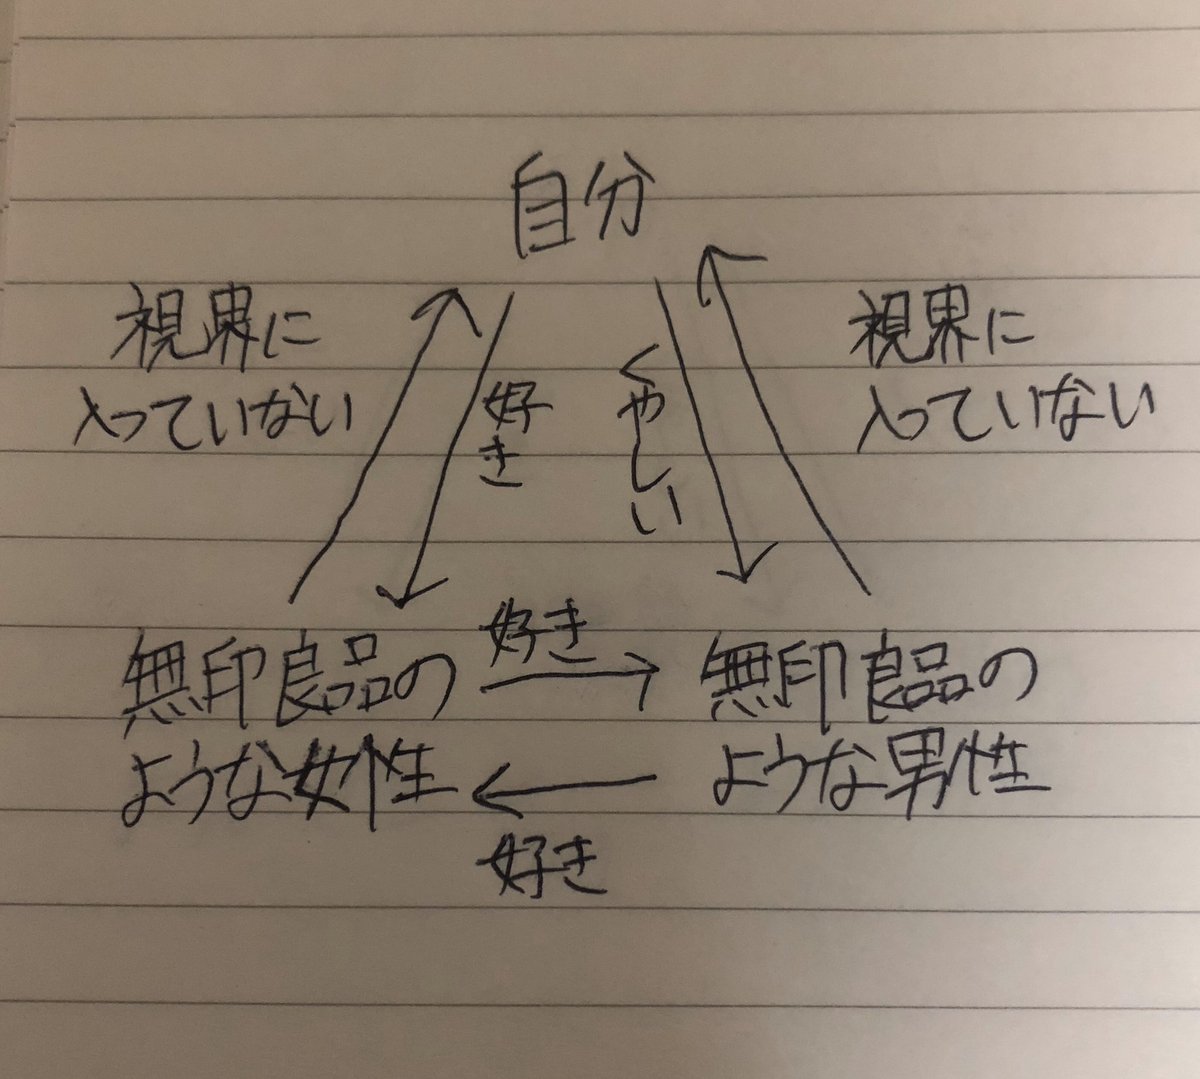 自分
視界に
入っていない
好き
くやしい
視界に
入っていない
無印良品の
ような女性
好き
好き
無印良品の
ような男性